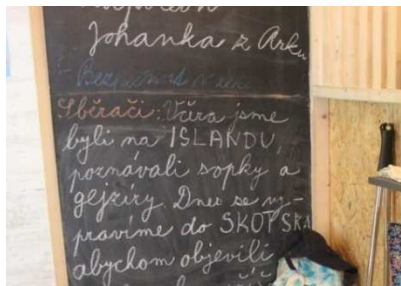 Johanka z Arku
Sběrači: Včera jsme
byli na ISLANDU,
poznávali sopky a
gejzíry. Dnes se vy-
pravíme do SKOTSKA
abychom objevili